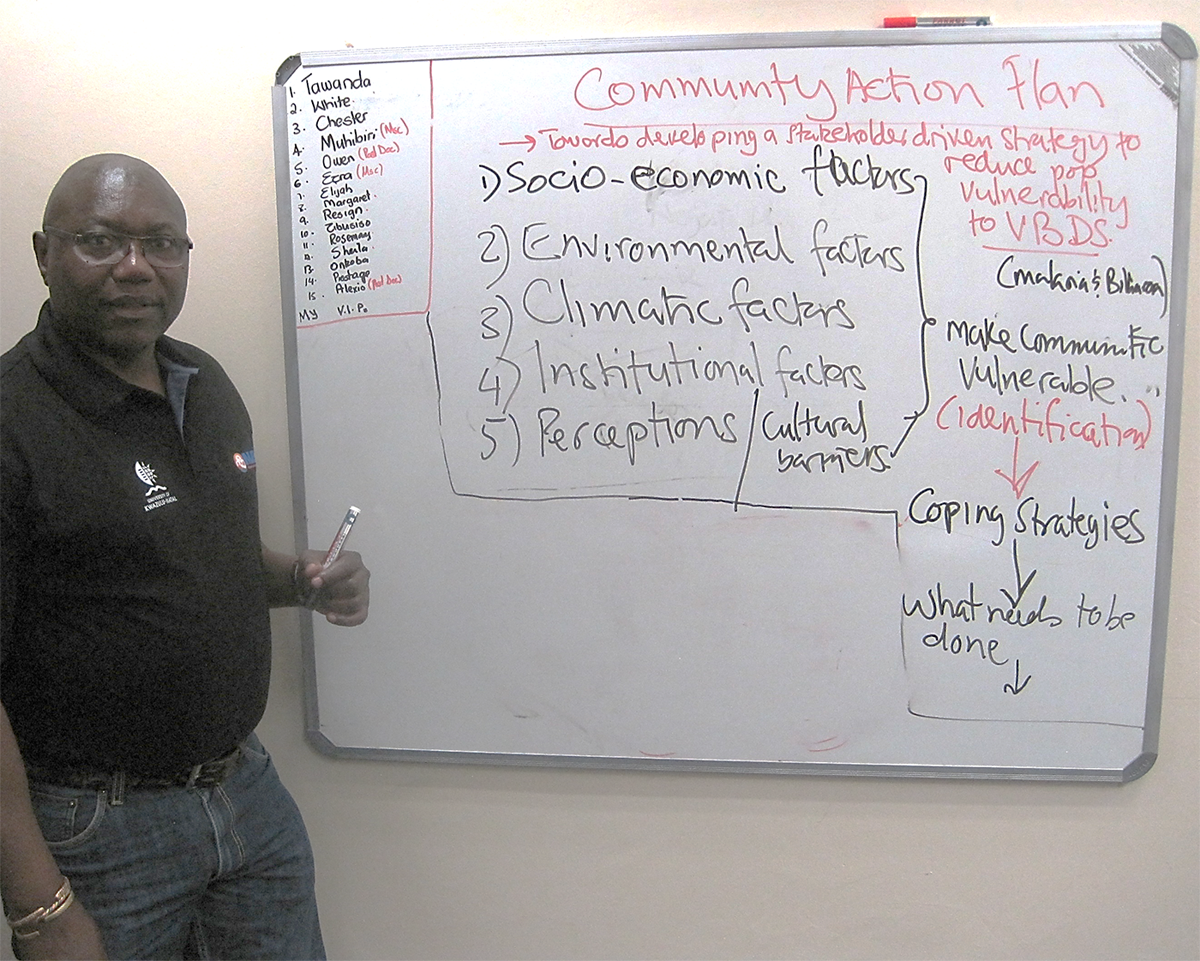 1. Tawanda
2. White.
3. Chester
4. Muhibiri (Msc)
5. Owen (Post Doc)
6. Ezra (Msc)
7. Elijah
8. Margaret.
9. Resign.
10. Zibusiso
11. Rosemary
12. Sheila.
13. Onkoba
14. Postage
15. Alexio (Post Doc)
MY V.I.P.
Community Action Plan
→ Towards developing a stakeholder driven strategy to
reduce pop
vulnerability
to VBDS.
(malaria & Bilharzia)
1) Socio-economic factors
2) Environmental factors
3) Climatic factors
4) Institutional factors
5) Perceptions / Cultural
barriers.
make Communitie
Vulnerable....
(identification)
Coping Strategies
What needs to be
done
UNIVERSITY OF
KWAZULU-NATAL